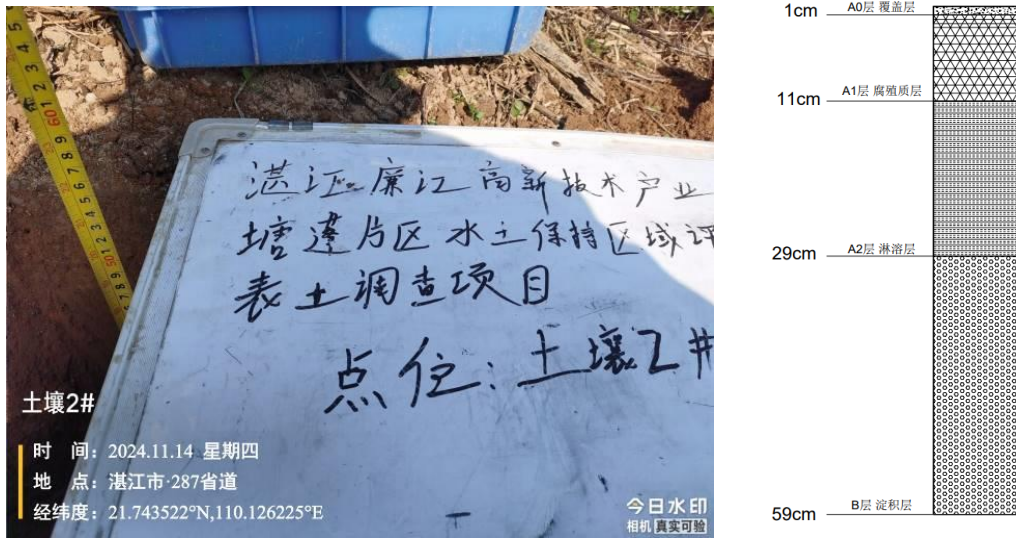 湛江廉江高新技术产业
塘蓬片区水土保持区域评
表土调查项目
点位:土壤2#
土壤2#
时 间:2024.11.14 星期四
地 点:湛江市·287省道
经纬度:21.743522°N,110.126225°E
今日水印
相机 真实可验
1cm A0层 覆盖层
11cm A1层 腐殖质层
29cm A2层 淋溶层
59cm B层 淀积层